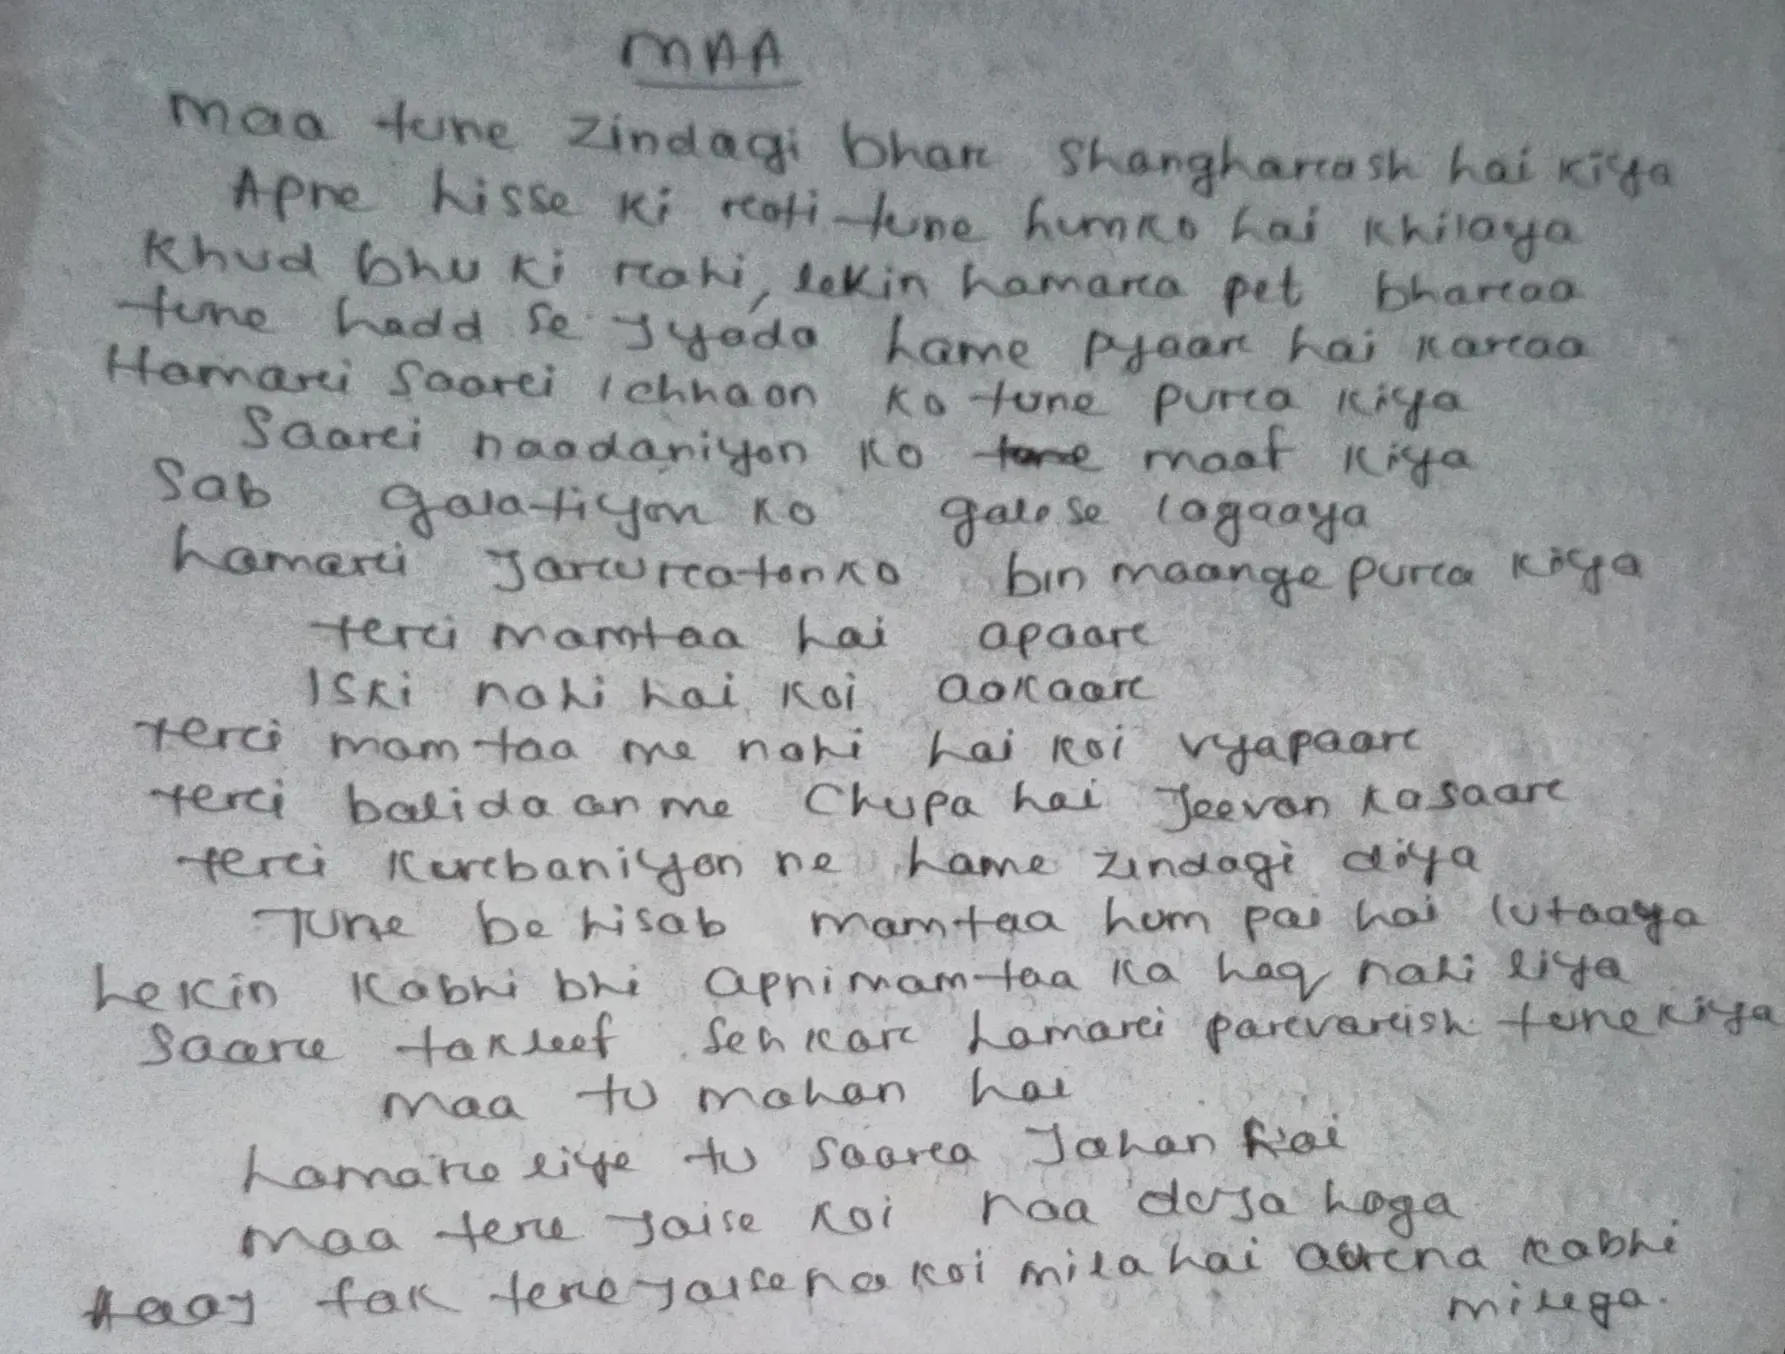 MAA
Maa tune zindagi bhar Shangharash hai kiya
Apne hisse ki roti tune humko hai khilaya
Khud bhuki rahi, lekin hamara pet bharaa
tune hadd se Jyada hame pyaar hai karaa
Hamari Saari ichhaon ko tune pura kiya
Saari naadaniyon ko maaf kiya
Sab galatiyon ko gale se lagaaya
hamari Jaruraton ko bin maange pura kiya
teri mamtaa hai apaar
Iski nahi hai koi aakaar
teri mamtaa me nahi hai koi vyapaar
teri balidaan me Chupa hai Jeevan ka saar
teri Kurbaniyon ne hame zindagi diya
Tune behisab mamtaa hum pai hai lutaaya
Lekin kabhi bhi apni mamtaa ka haq nahi liya
Saare takleef Seh kar hamari parvarish tune kiya
Maa tu mahan hai
hamare liye tu saara Jahan hai
Maa tere Jaise koi naa duja hoga
Aaaj tak tere Jaise na koi mila hai aur na kabhi
milega.